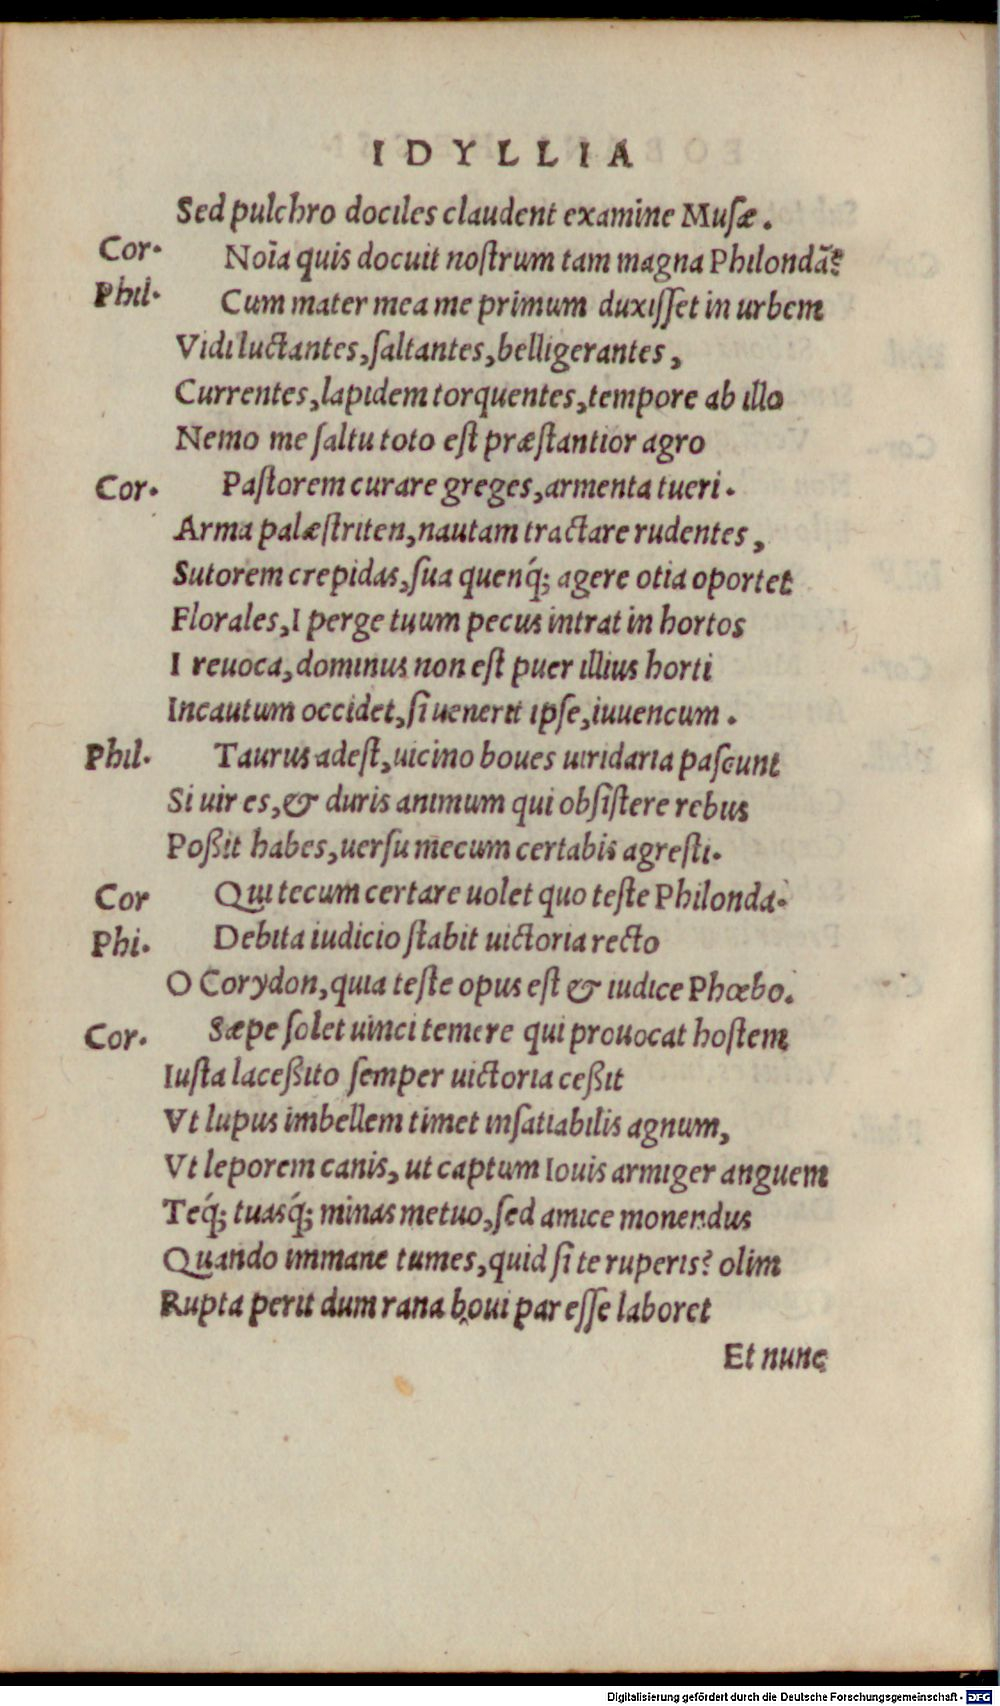 IDYLLIA
Sed pulchro dociles claudent examine Musæ.
Cor. Noīa quis docuit nostrum tam magna Philondā?
Phil. Cum mater mea me primum duxisset in urbem
Vidi luctantes, saltantes, belligerantes,
Currentes, lapidem torquentes, tempore ab illo
Nemo me saltu toto est præstantior agro
Cor. Pastorem curare greges, armenta tueri.
Arma palæstriten, nautam tractare rudentes,
Sutorem crepidas, sua quenq́; agere otia oportet
Florales, I perge tuum pecus intrat in hortos
I reuoca, dominus non est puer illius horti
Incautum occidet, si uenerit ipse, iuuencum.
Phil. Taurus adest, uicino boues uiridaria pascunt
Si uir es, & duris animum qui obsistere rebus
Poßit habes, uersu mecum certabis agresti.
Cor Qui tecum certare uolet quo teste Philonda.
Phi. Debita iudicio stabit uictoria recto
O Corydon, quia teste opus est & iudice Phœbo.
Cor. Sæpe solet uinci temere qui prouocat hostem
Iusta laceßito semper uictoria ceßit
Vt lupus imbellem timet insatiabilis agnum,
Vt leporem canis, ut captum Iouis armiger anguem
Teq́; tuasq́; minas metuo, sed amice monendus
Quando immane tumes, quid si te ruperis? olim
Rupta perit dum rana boui par esse laboret
Et nunc
Digitalisierung gefördert durch die Deutsche Forschungsgemeinschaft - DFG